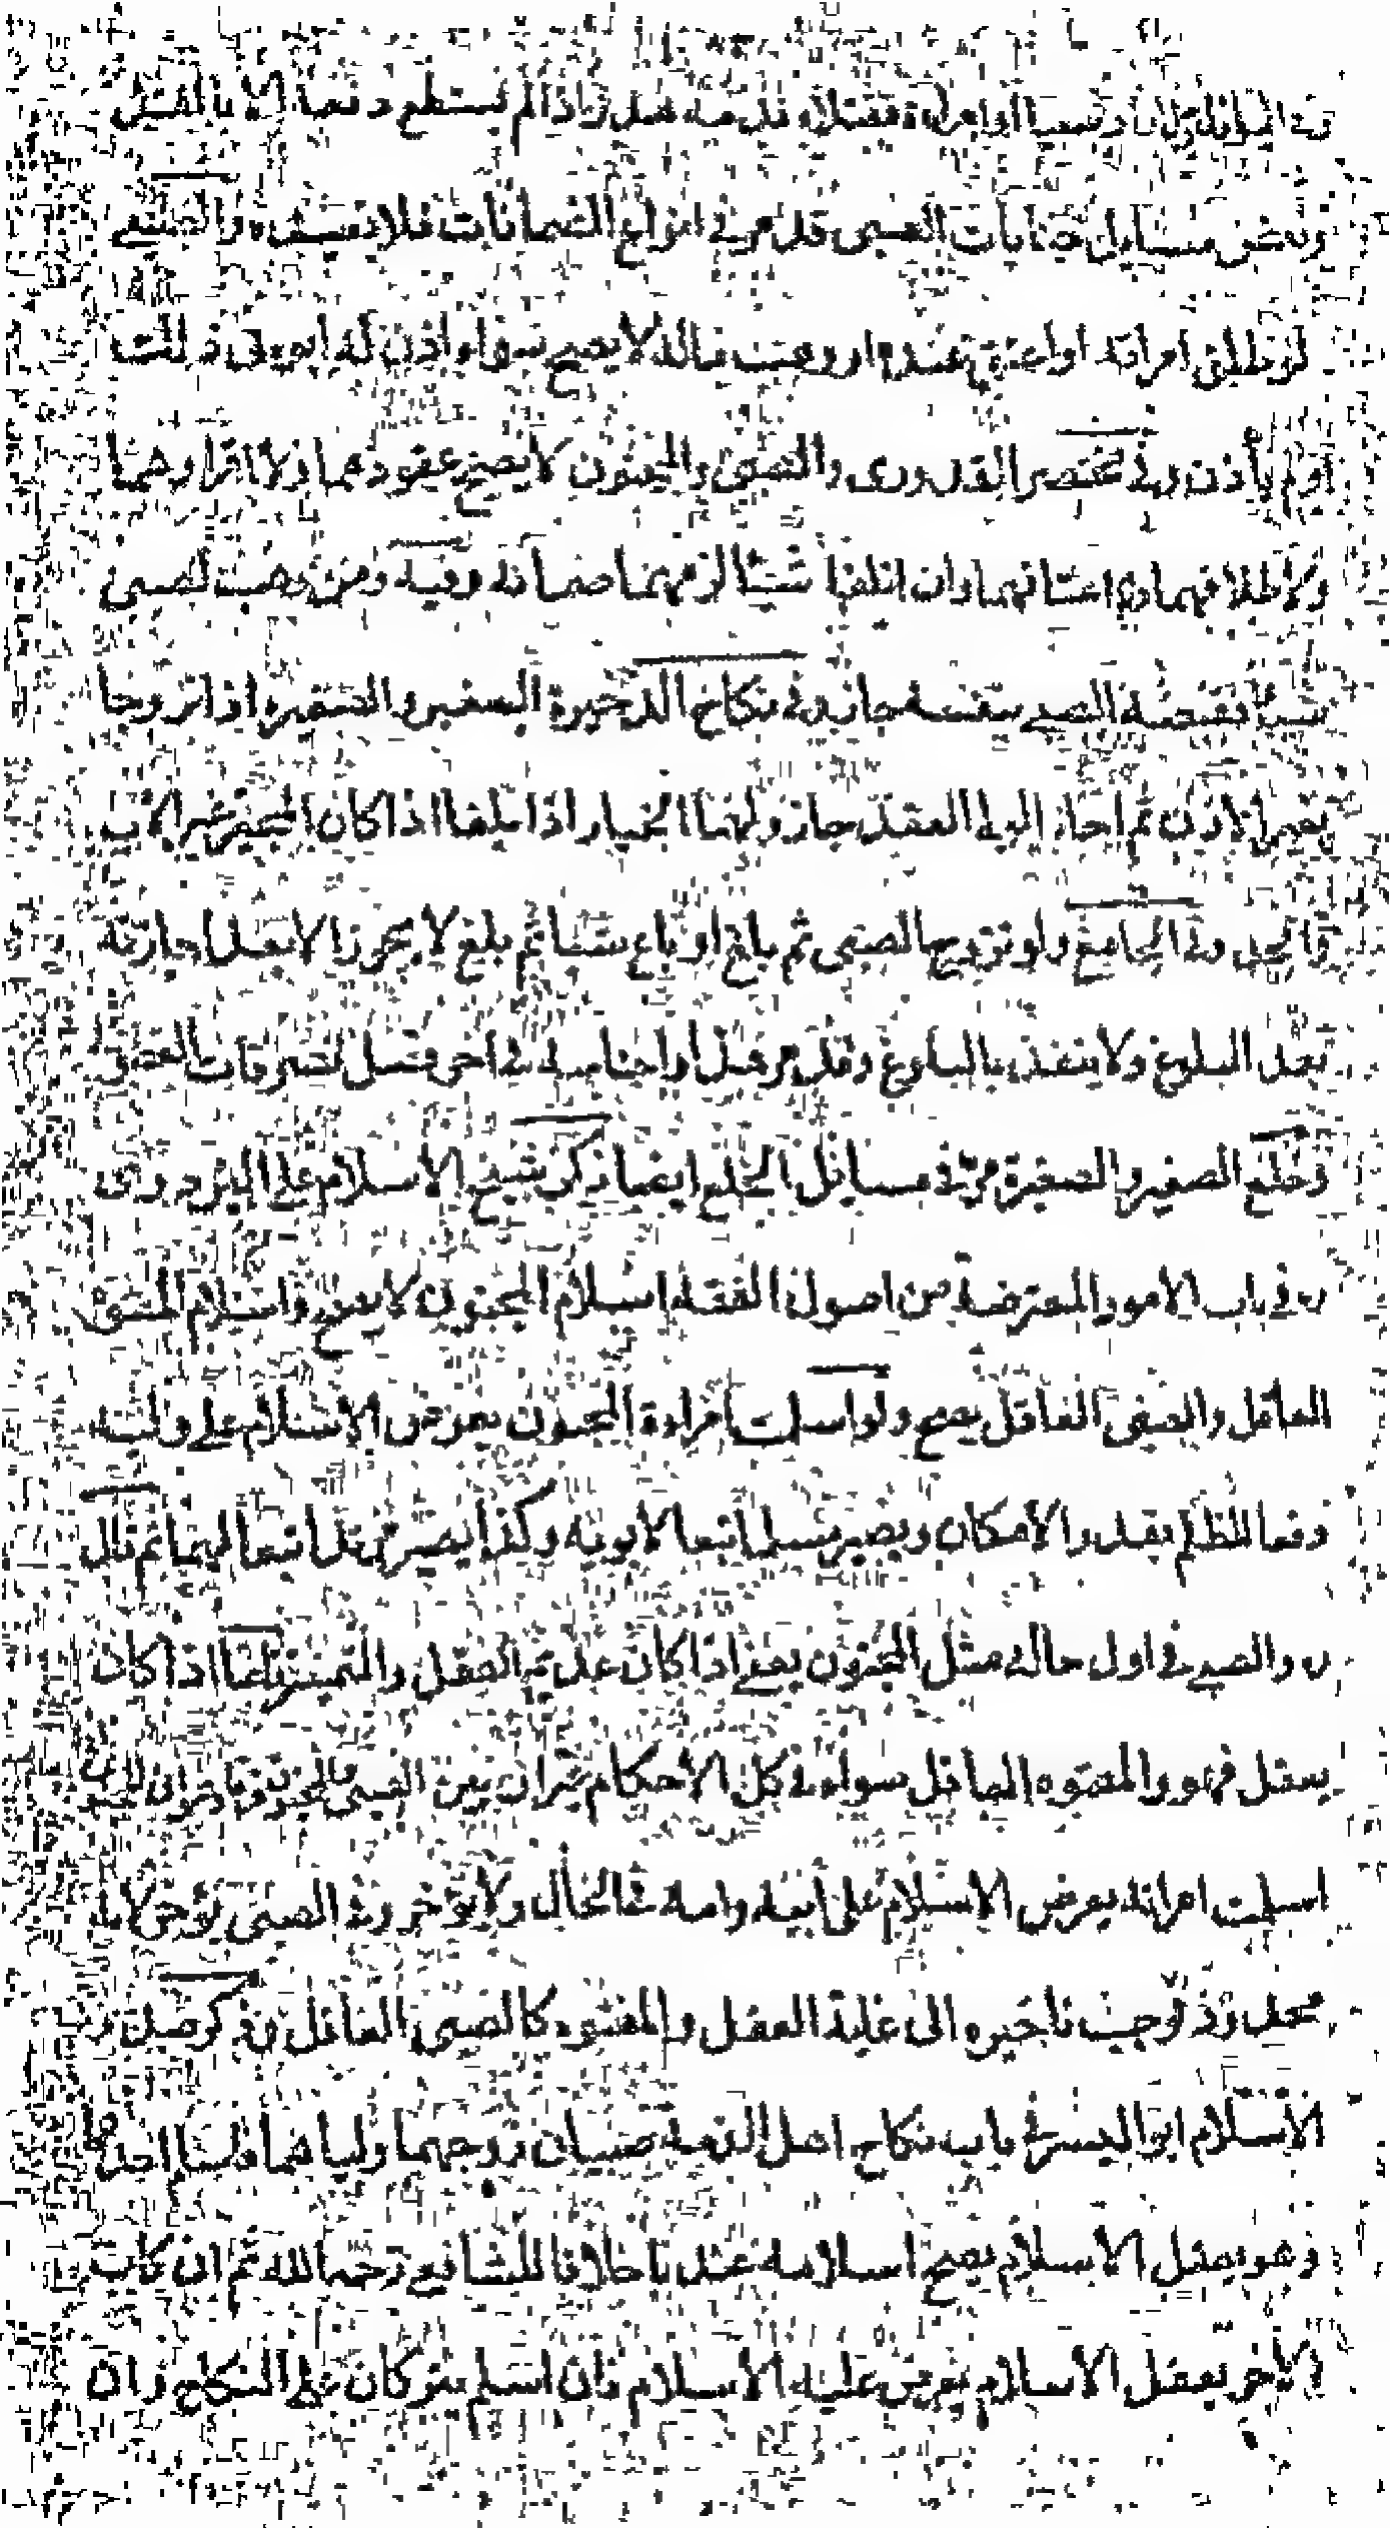 وبعض مسايل جنايات الصبي قد مر في انواع الضمانات فلا نعيده والصبي
لو طلق امراته او اعتق عبده او وهب ماله لا يصح سواء اذن له ابوه في ذلك
او لم يأذن وفي مختصر القدوري والصبي والمجنون لا يصح عقودهما ولا اقرارهما
ولا طلاقهما ولا اعتاقهما وان اتلفا شيئا لزمهما ضمانه وفيه ومن وهب لصبي
شيئا فقبضه الصبي بنفسه جاز وفي نكاح الذخيرة الصغير والصغيرة اذا تزوجا
بغير الاذن ثم اجاز الولي العقد جاز ولهما الخيار اذا بلغا اذا كان المجيز غير الاب
والجد وفي الجامع ولو تزوج الصبي ثم بلغ او باع شيئا ثم بلغ لا يجوز الا بعد اجازته
بعد البلوغ ولا ينفذ بالبلوغ وقد مر هذا واجناسه في اخر فصل تصرفات
وخلع الصغير والصغيرة مر في مسايل الخلع ايضا ذكر شيخ الاسلام علي البزدوي
في باب الامور المعترضة من اصول الفقه اسلام المجنون لا يصح واسلام المعتوه
العاقل والصبي العاقل يصح ولو اسلمت امراة المجنون يعرض الاسلام على وليه
دفعا للظلم بقدر الامكان ويصير مسلما تبعا لابويه وكذا يصير مرتدا تبعا لهما ثم قال
والصبي في اول حاله مثل المجنون يعني اذا كان عديم العقل والتمييز اما اذا كان
يعقل فهو والمعتوه العاقل سواء في كل الاحكام غير ان بين الصبي والمجنون
اسلمت امراته يعرض الاسلام على ابيه وامه في الحال ولا يؤخر وفي الصبي يؤخر لانه
محدود فوجب تاخيره الى غاية العقل والمعتوه كالصبي العاقل وذكر صدر
الاسلام ابو اليسر في باب نكاح اهل الذمة صبيان زوجهما ولياهما فاسلم احدهما
وهو يعقل الاسلام يصح اسلامه عندنا خلافا للشافعي رحمه الله ثم ان كان
الاخر يعقل الاسلام يعرض عليه الاسلام فان اسلم يتركان على النكاح وان